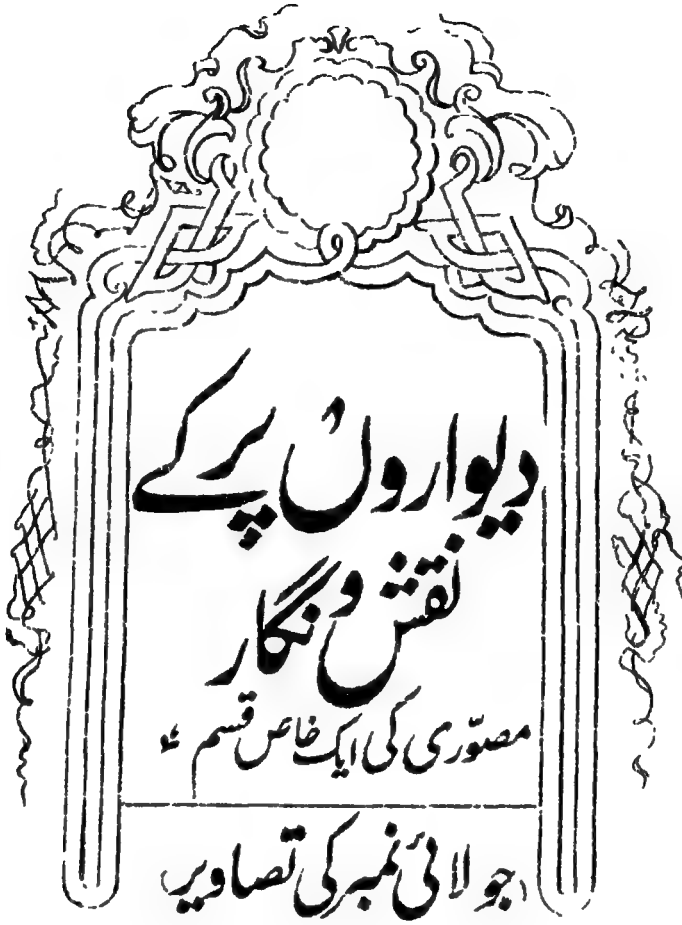 دیواروں پر کے
نقش و نگار
مصوّری کی ایک خاص قسم
(جولائی نمبر کی تصاویر)